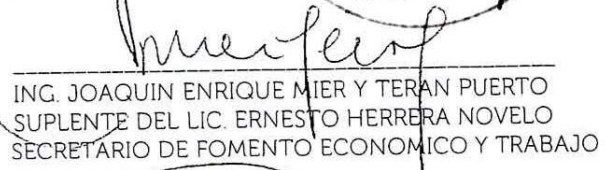 ING. JOAQUIN ENRIQUE MIER Y TERAN PUERTO
SUPLENTE DEL LIC. ERNESTO HERRERA NOVELO
SECRETARIO DE FOMENTO ECONOMICO Y TRABAJO